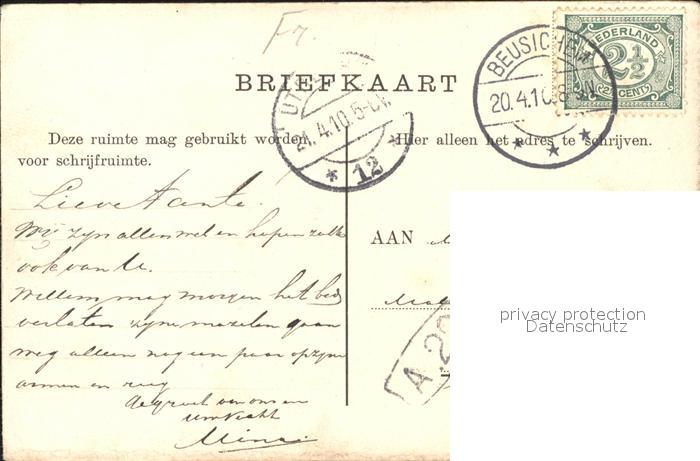 Fr.
BRIEFKAART
BEUSICHEM
20.4.10.8-9N
NEDERLAND
2½
(2½ CENT)
UT
21.4.10.5-6
12
Deze ruimte mag gebruikt worden
voor schrijfruimte.
Hier alleen het adres te schrijven.
Lieve Tante.
Wij zijn allen wel en hopen zulk
ook van U.
Willem mag morgen het bed
verlaten zijne mazelen gaan
weg alleen nog een paar op zijn
armen en rug
de groet van ons en
Mina
AAN
A 29
privacy protection
Datenschutz